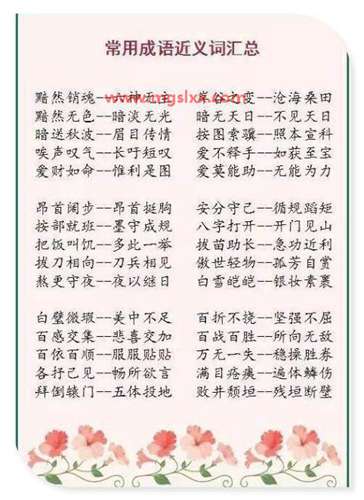 常用成语近义词汇总
www.mgslxx.com
黯然销魂--六神无主 岸谷之变--沧海桑田
黯然无色--暗淡无光 暗无天日--不见天日
暗送秋波--眉目传情 按图索骥--照本宣科
唉声叹气--长吁短叹 爱不释手--如获至宝
爱财如命--惟利是图 爱莫能助--无能为力
昂首阔步--昂首挺胸 安分守己--循规蹈矩
按部就班--墨守成规 八字打开--开门见山
把饭叫饥--多此一举 拔苗助长--急功近利
拔刀相向--刀兵相见 傲世轻物--孤芳自赏
熬更守夜--夜以继日 白雪皑皑--银妆素裹
白璧微瑕--美中不足 百折不挠--坚强不屈
百感交集--悲喜交加 百战百胜--所向无敌
百依百顺--服服贴贴 万无一失--稳操胜券
各抒己见--畅所欲言 满目疮痍--遍体鳞伤
拜倒辕门--五体投地 败井颓垣--残垣断壁